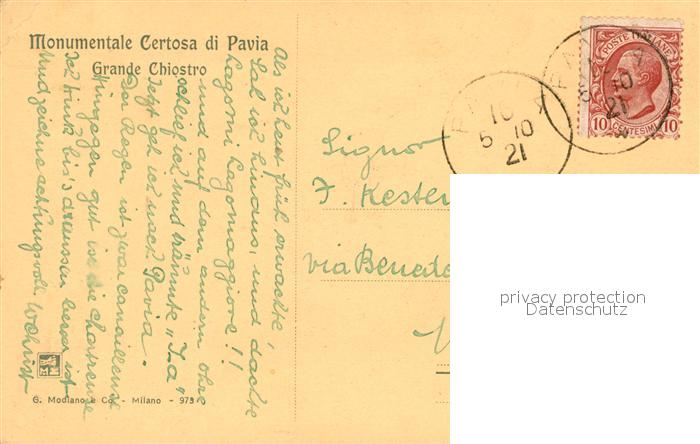 Monumentale Certosa di Pavia
Grande Chiostro
Als ich heut früh erwachte,
sah ich hinaus, und dachte
Lagomi Lagomaggiore!!
und auf dem andern Ohre
schlief ich und träumte "Ja"
Jetzt geh ich nach Pavia.
Der Regen ist zwar
Hingegen gut ist die Chartreuse
Ich trink bis draussen besser ist
Und zeichne achtungsvoll
G. Modiano e Co. - Milano - 973
Signor
F. Kester
via Benede
POSTE ITALIANE
10 CENTESIMI 10
PAVIA
16
5 10
21
10
21
privacy protection
Datenschutz